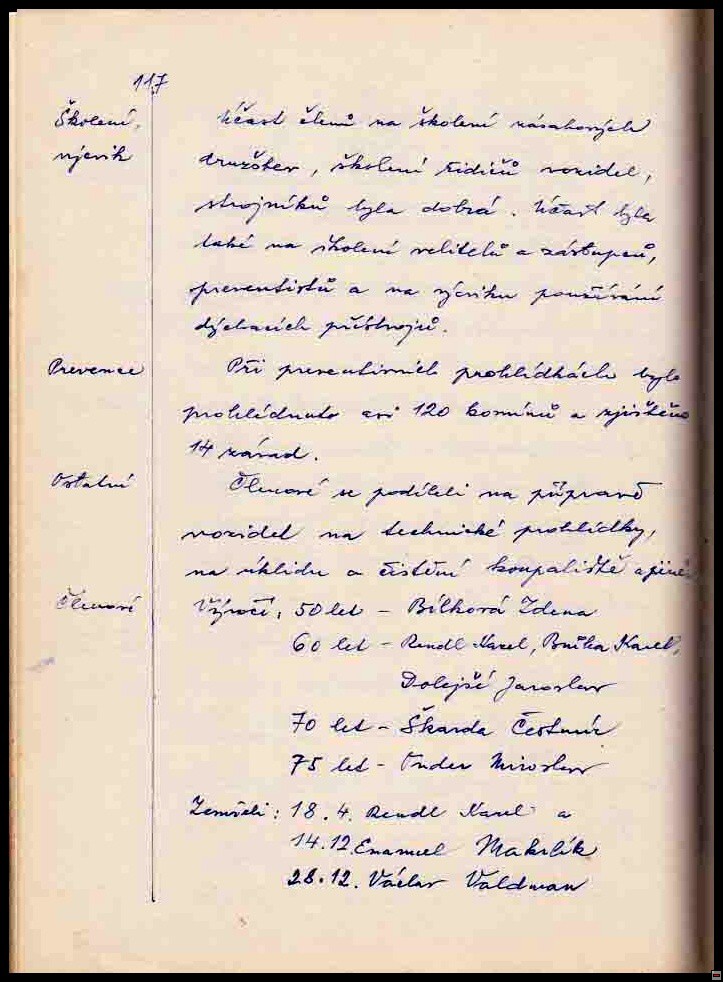 117
Školení,
výcvik
Účast členů na školení zásahových
družstev, školení řidičů vozidel,
strojníků byla dobrá. Účast byla
také na školení velitelů a zástupců,
preventistů a na výcviku používání
dýchacích přístrojů.
Prevence
Při preventivních prohlídkách bylo
prohlédnuto asi 120 komínů a zjištěno
14 závad.
Ostatní
Členové se podíleli na přípravě
vozidel na technické prohlídky,
na úklidu a čistění koupaliště a jiné
Členové
Výročí: 50 let - Bílková Zdena
60 let - Rendl Karel, Karel,
Dolejší Jaroslav
70 let - Škarda Čestmír
75 let - Onder Miroslav
Zemřeli: 18.4. Rendl Karel a
14.12. Emanuel Makrlík
28.12. Václav Valdman